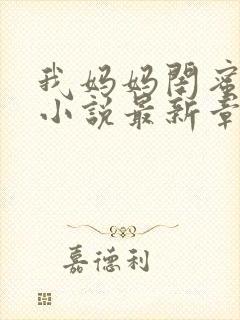 我妈妈闺蜜
小说最新章
嘉德利